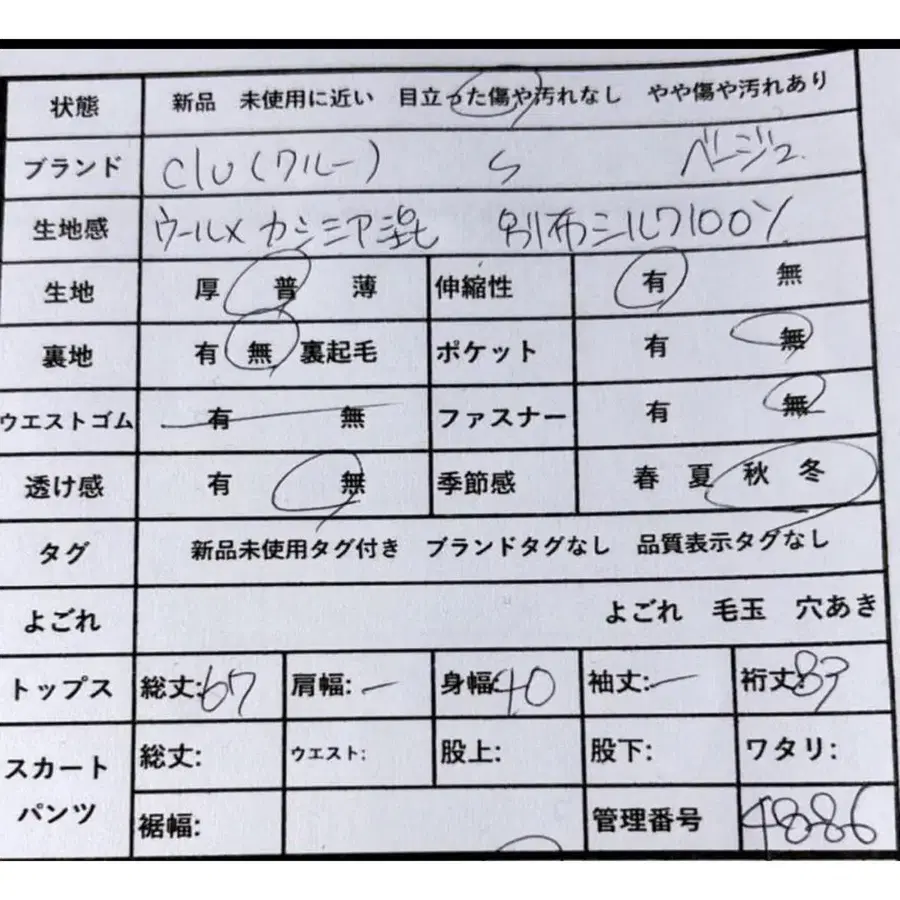 状態 新品 未使用に近い 目立った傷や汚れなし やや傷や汚れあり
ブランド clu(クルー) S ベージュ
生地感 ウール×カシミア混 別布シルク100%
生地 厚 普 薄 伸縮性 有 無
裏地 有 無 裏起毛 ポケット 有 無
ウエストゴム 有 無 ファスナー 有 無
透け感 有 無 季節感 春 夏 秋 冬
タグ 新品未使用タグ付き ブランドタグなし 品質表示タグなし
よごれ よごれ 毛玉 穴あき
トップス 総丈:67 肩幅:— 身幅:40 袖丈:— 裄丈:83
スカート パンツ 総丈: ウエスト: 股上: 股下: ワタリ:
裾幅: 管理番号 4886